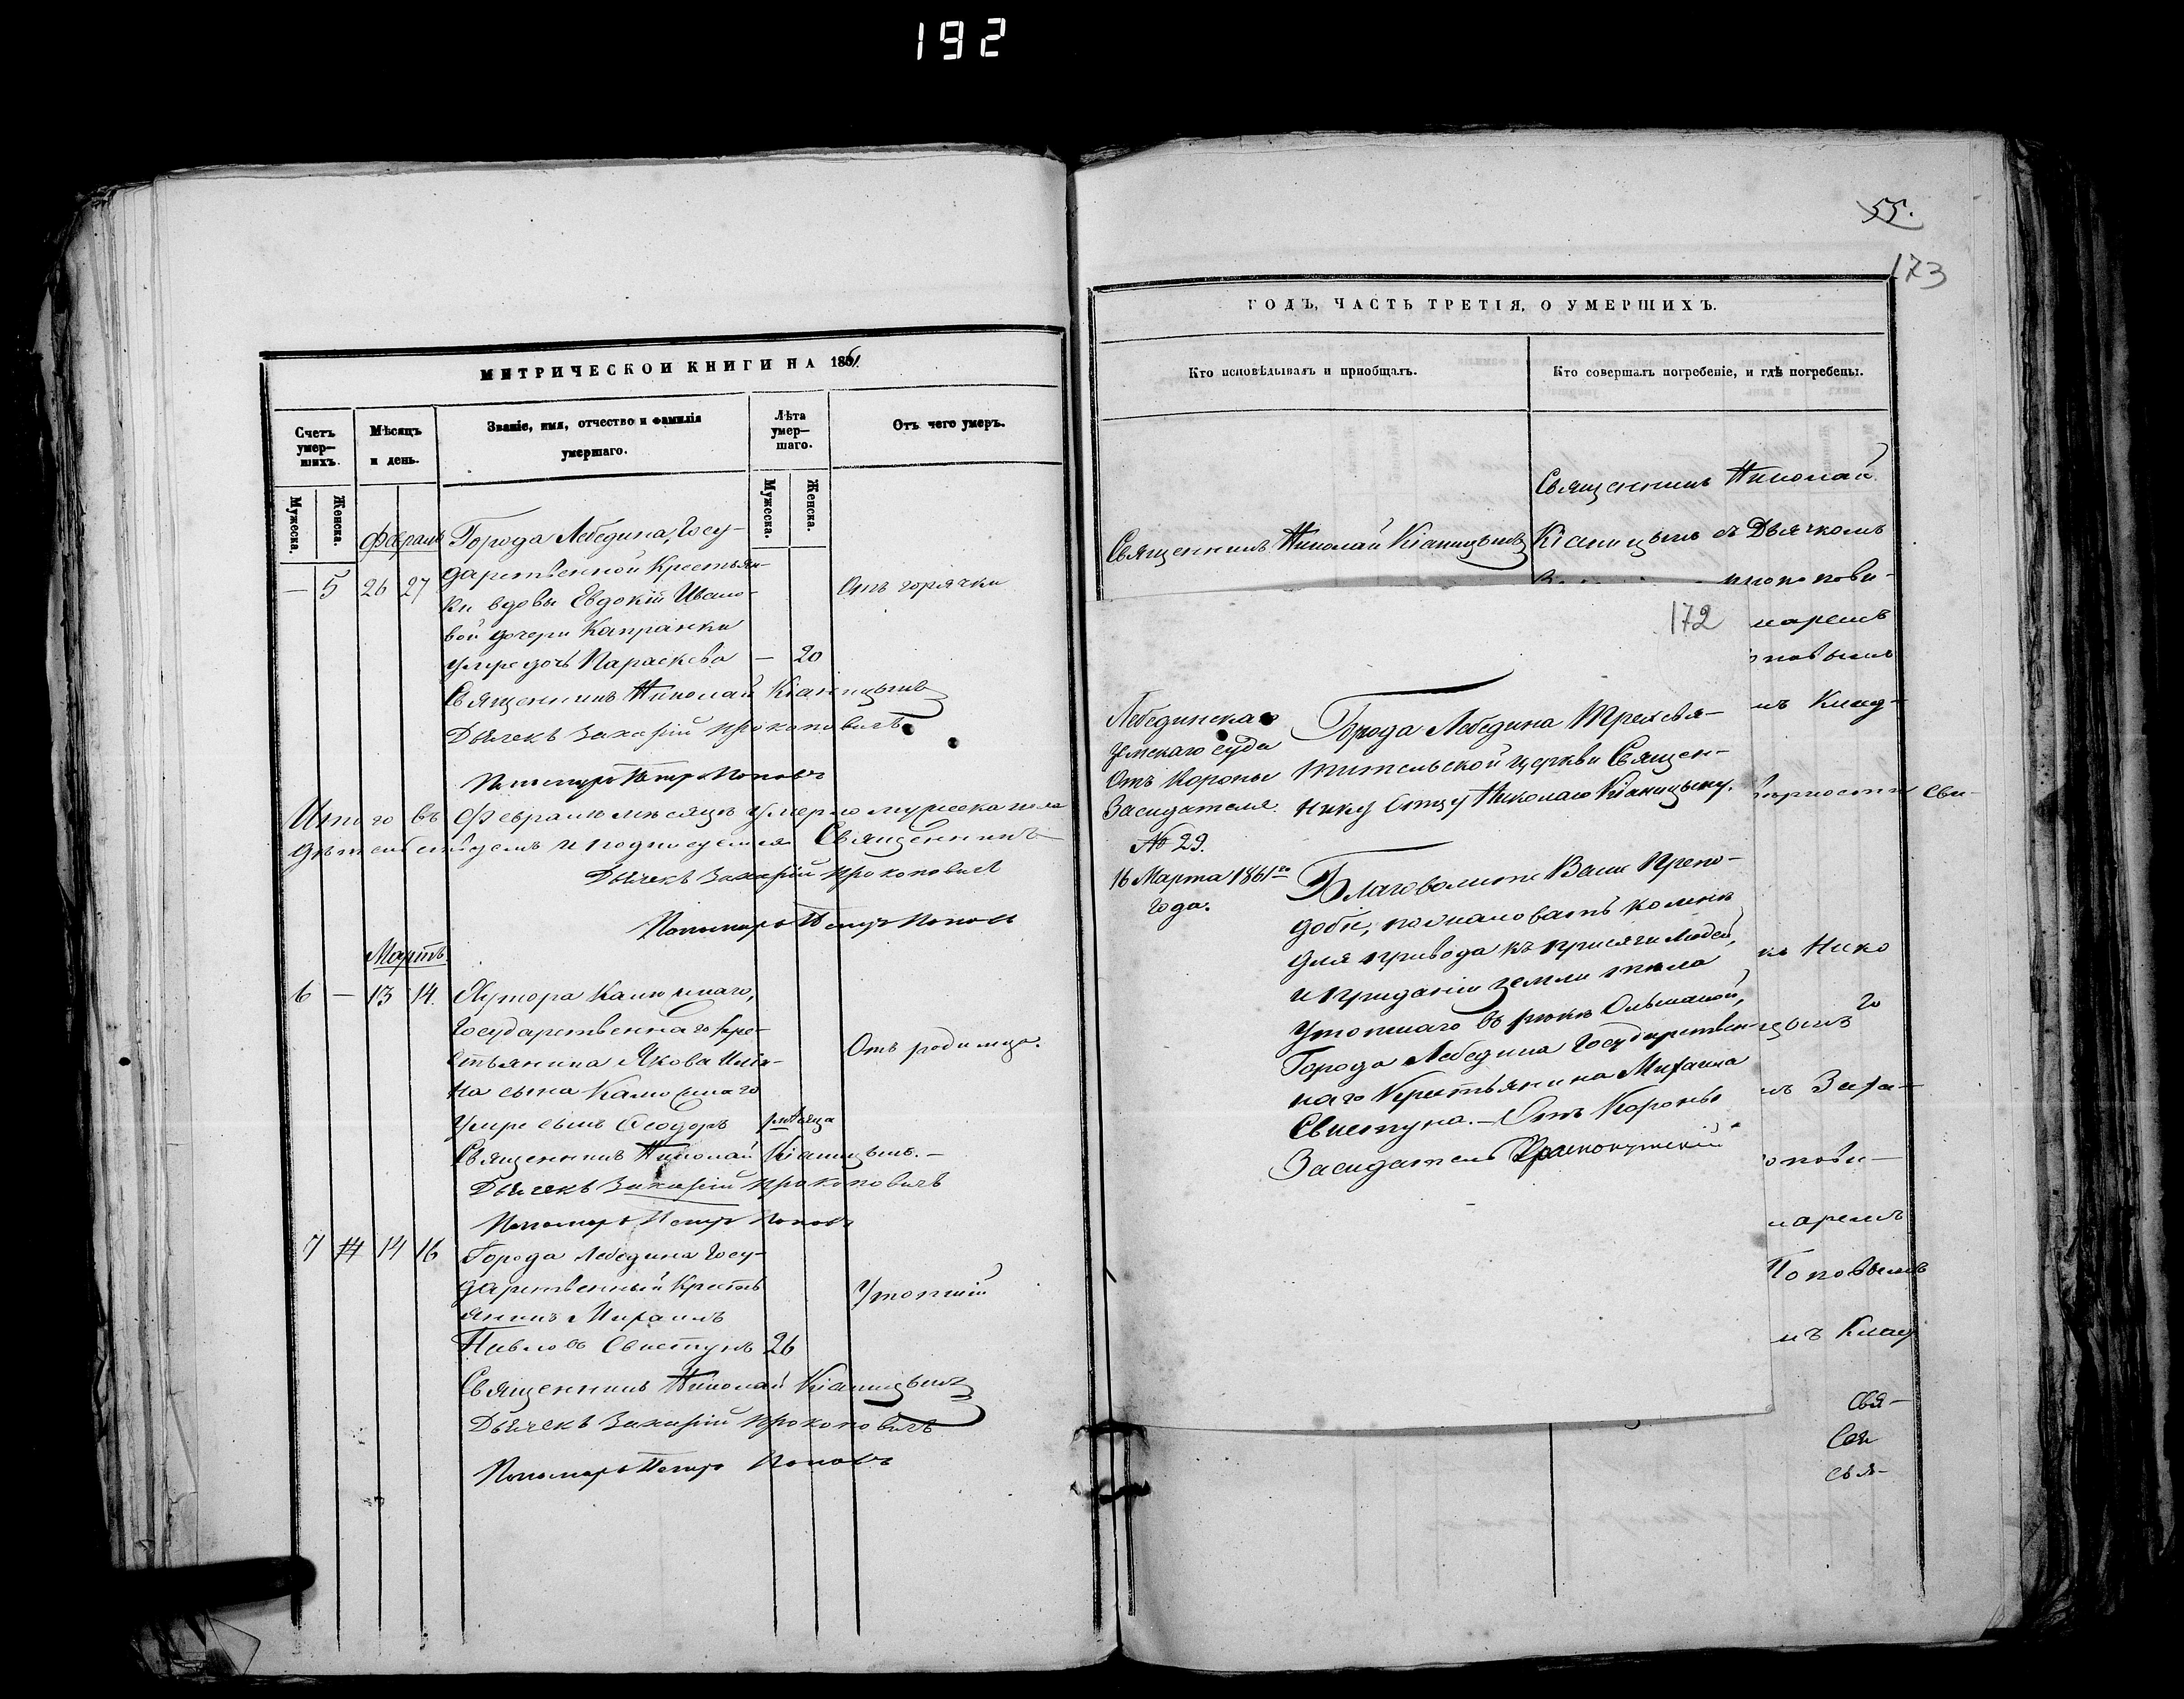 192
МЕТРИЧЕСКОЙ КНИГИ НА 1861
Счетъ умер-шихъ.
Мѣсяцъ и день.
Званіе, имя, отчество и фамилія умершаго.
Лѣта умер-шаго.
Отъ чего умеръ.
Мужеска.
Женска.
Мужеска.
Женска.
Февраль
— 5 26 27
Города Лебедина, Госу-
дарственной Крестьян-
ки вдовы Евдокіи Ивано-
вой дочери Капранки
умре дочь Параскева — 20
Отъ горячки
Священникъ Николай Кіаницынъ
Дьячекъ Захарій Прокоповичъ
Пономарь Петръ Поповъ
Итого въ Февралѣ мѣсяцѣ умерло мужеска пола
Священникъ
Дьячекъ Захарій Прокоповичъ
Пономарь Петръ Поповъ
Мартъ.
6 — 13 14.
Хутора
Государственнаго Кре-
стьянина Якова
на сына
умре сынъ Ѳеодоръ
Отъ родимца.
Священникъ Николай Кіаницынъ. —
Дьячекъ Захарій Прокоповичъ
Пономарь Петръ Поповъ
7 14 16
Города Лебедина Госу-
дарственный Кресть
янинъ Михаилъ
Павловъ Свистунъ 26
Утопшій
Священникъ Николай Кіаницынъ
Дьячекъ Захарій Прокоповичъ
Пономарь Петръ Поповъ
55.
173
ГОДЪ, ЧАСТЬ ТРЕТІЯ, О УМЕРШИХЪ.
Кто исповѣдывалъ и пріобщалъ.
Кто совершалъ погребеніе, и гдѣ погребены.
Священникъ Николай Кіаницынъ
Священникъ Николай
Кіаницынъ съ Дьячкомъ
прокопови-
маремъ
оповымъ
мъ Клад-
172
Лебединскаго
Земскаго суда
Отъ Короны
Засидателя
№ 29.
16 Марта 1861го
Года.
Города Лебедина Трехсвя-
тительской церкви Священ-
нику Отцу Николаю Кіаницыну.
Благоволите Ваше Препо-
добіе, пожаловать ко мнѣ
для привода къ присяги людей,
и приданіи земли тѣла
утопшаго въ рѣкѣ Ольшаной,
Города Лебедина Государствен-
наго Крестьянина Михаила
Свистуна. — Отъ Короны
Засидатель Краснокутскій
къ Нико
цынъ
мъ Заха-
опови—
маремъ
Поповымъ
мъ Клад
Свя-
Свя-